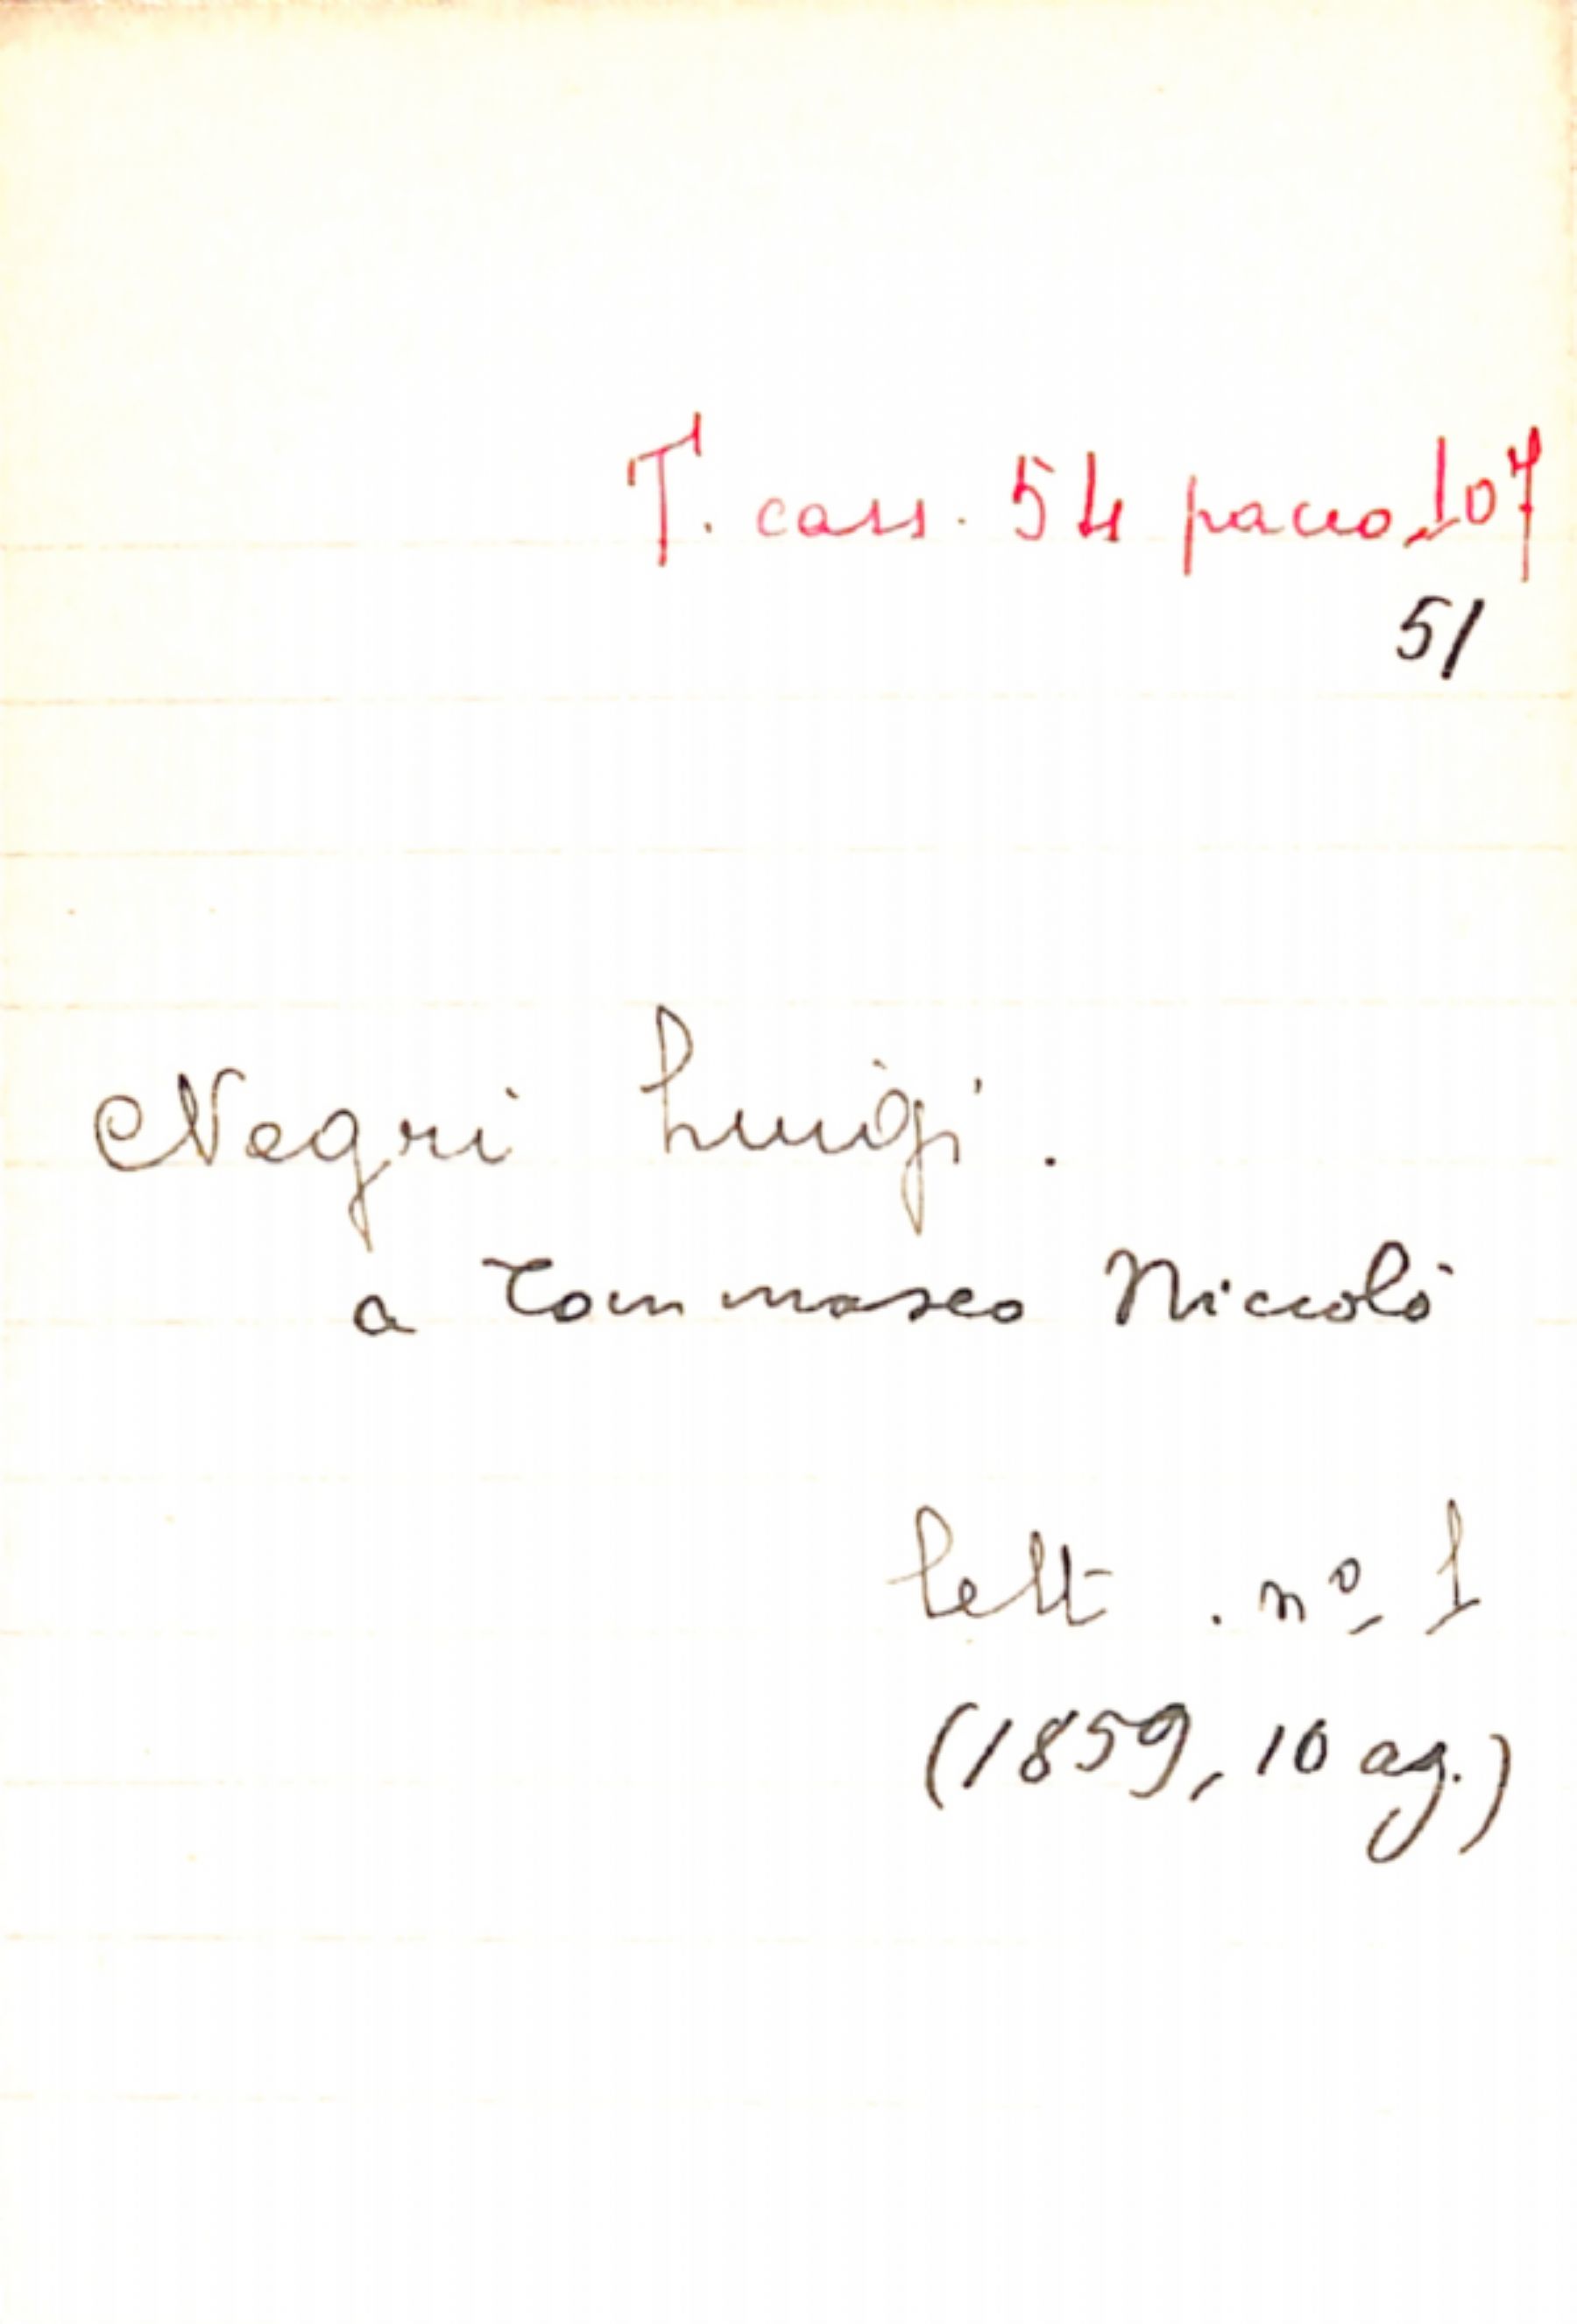 T. cass. 54 pacco, 107
51
Negri Luigi.
a Tommaseo Niccolò
lett. nº 1
(1859, 10 ag.)